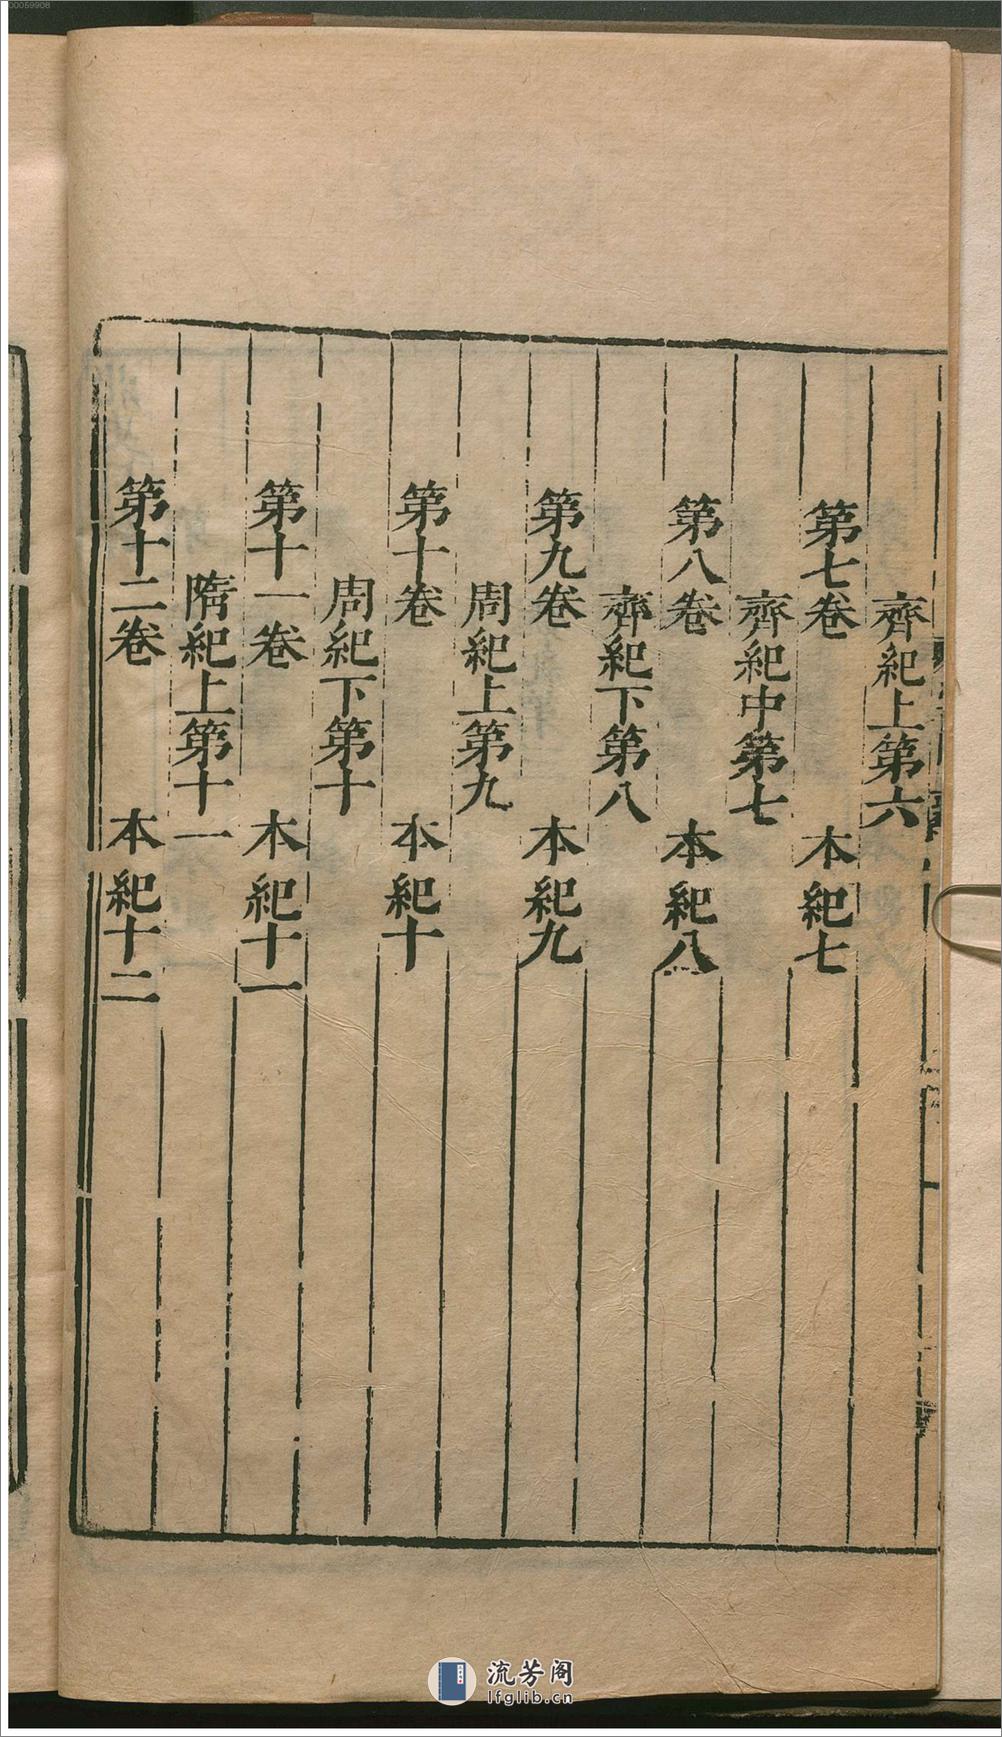 齊紀上第六
第七卷　本紀七
齊紀中第七
第八卷　本紀八
齊紀下第八
第九卷　本紀九
周紀上第九
第十卷　本紀十
周紀下第十
第十一卷　本紀十一
隋紀上第十一
第十二卷　本紀十二
00059908
流芳阁
lfglib.cn